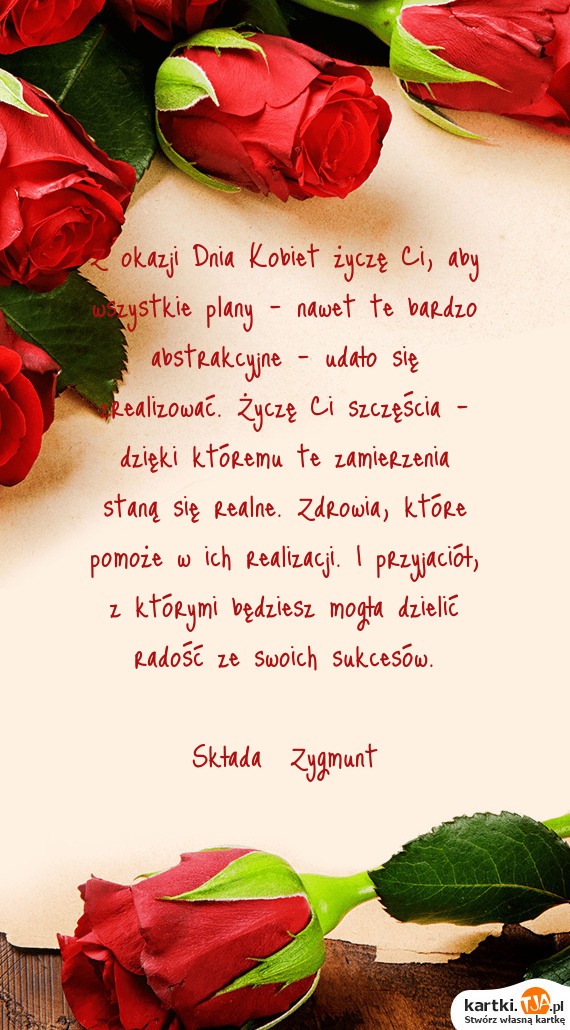 Z okazji Dnia Kobiet życzę Ci, aby
wszystkie plany - nawet te bardzo
abstrakcyjne - udało się
zrealizować. Życzę Ci szczęścia -
dzięki któremu te zamierzenia
staną się realne. Zdrowia, które
pomoże w ich realizacji. I przyjaciół,
z którymi będziesz mogła dzielić
radość ze swoich sukcesów.
Składa Zygmunt
kartki.TJA.pl
Stwórz własną kartkę